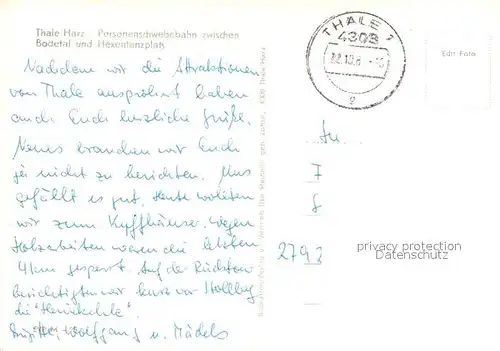 Thale Harz Personenschwebebahn zwischen
Bodetal und Hexentanzplatz
Nachdem wir die Attraktionen
von Thale ausprobiert haben
auch Euch herzliche Grüße.
Neues brauchen wir Euch
ja nicht zu berichten. Uns
gefällt es gut. Heute wollten
wir zum Kyffhäuser. Wegen
Holzarbeiten waren die letzten
4 km gesperrt. Auf der Rücktour
besichtigten wir kurz vor Stollberg
die "Heimkehle".
Wolfgang u. Mädels
THALE 1
4308
22.10.8
Echt Foto
An
F
2792
privacy protection
Datenschutz